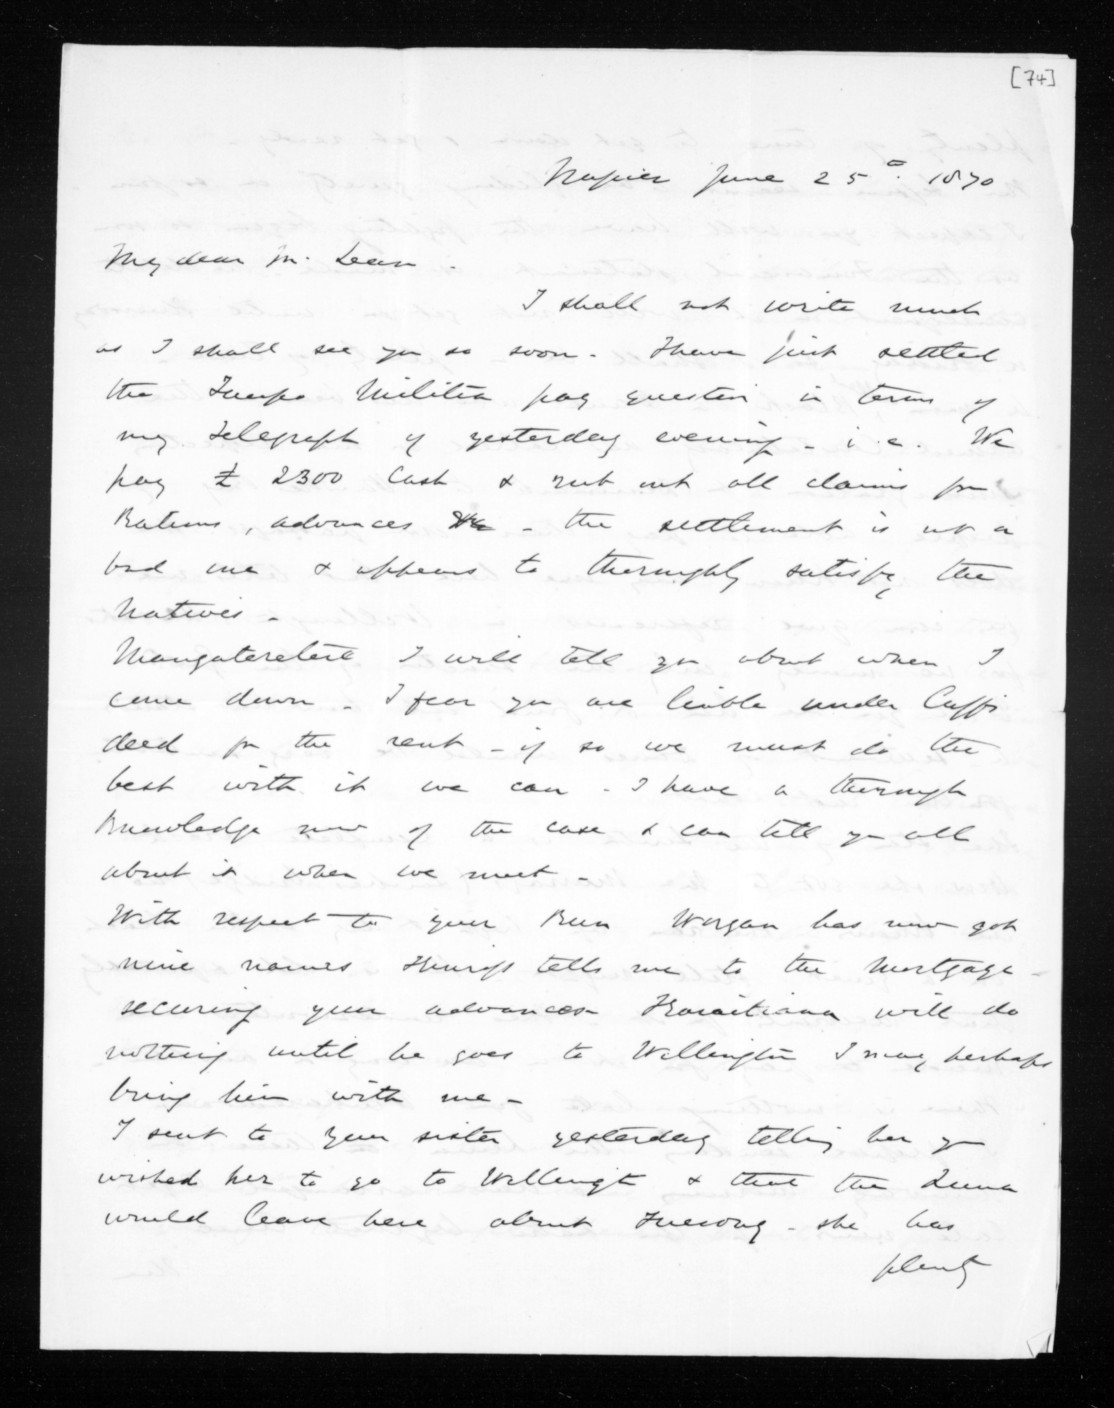 [74]
Napier June 25th. 1870
My dear Mc Lean.
I shall not write much
as I shall see you so soon. I have just settled
the Militia pay question in terms of
my telegraph of yesterday evening - i.e. We
pay £2300 Cash & rub out all claims for
Rations, advances &c - the settlement is not a
bad one & appears to thoroughly satisfy the
Natives -
Mangateretere I will tell you about when I
come down - I fear you are liable under Cuffs
deed for the rent - if so we must do the
best with it we can - I have a thorough
Knowledge now of the case & can tell you all
about it when we meet -
With respect to your Run Worgan has now got
nine names tells me to the Mortgage -
securing your advances Karaitiana will do
nothing until he goes to Wellington I may perhaps
bring him with me -
I sent to your sister yesterday telling her you
wished her to go to Wellingt & that the Luna
would leave here about Tuesday - she has
plenty